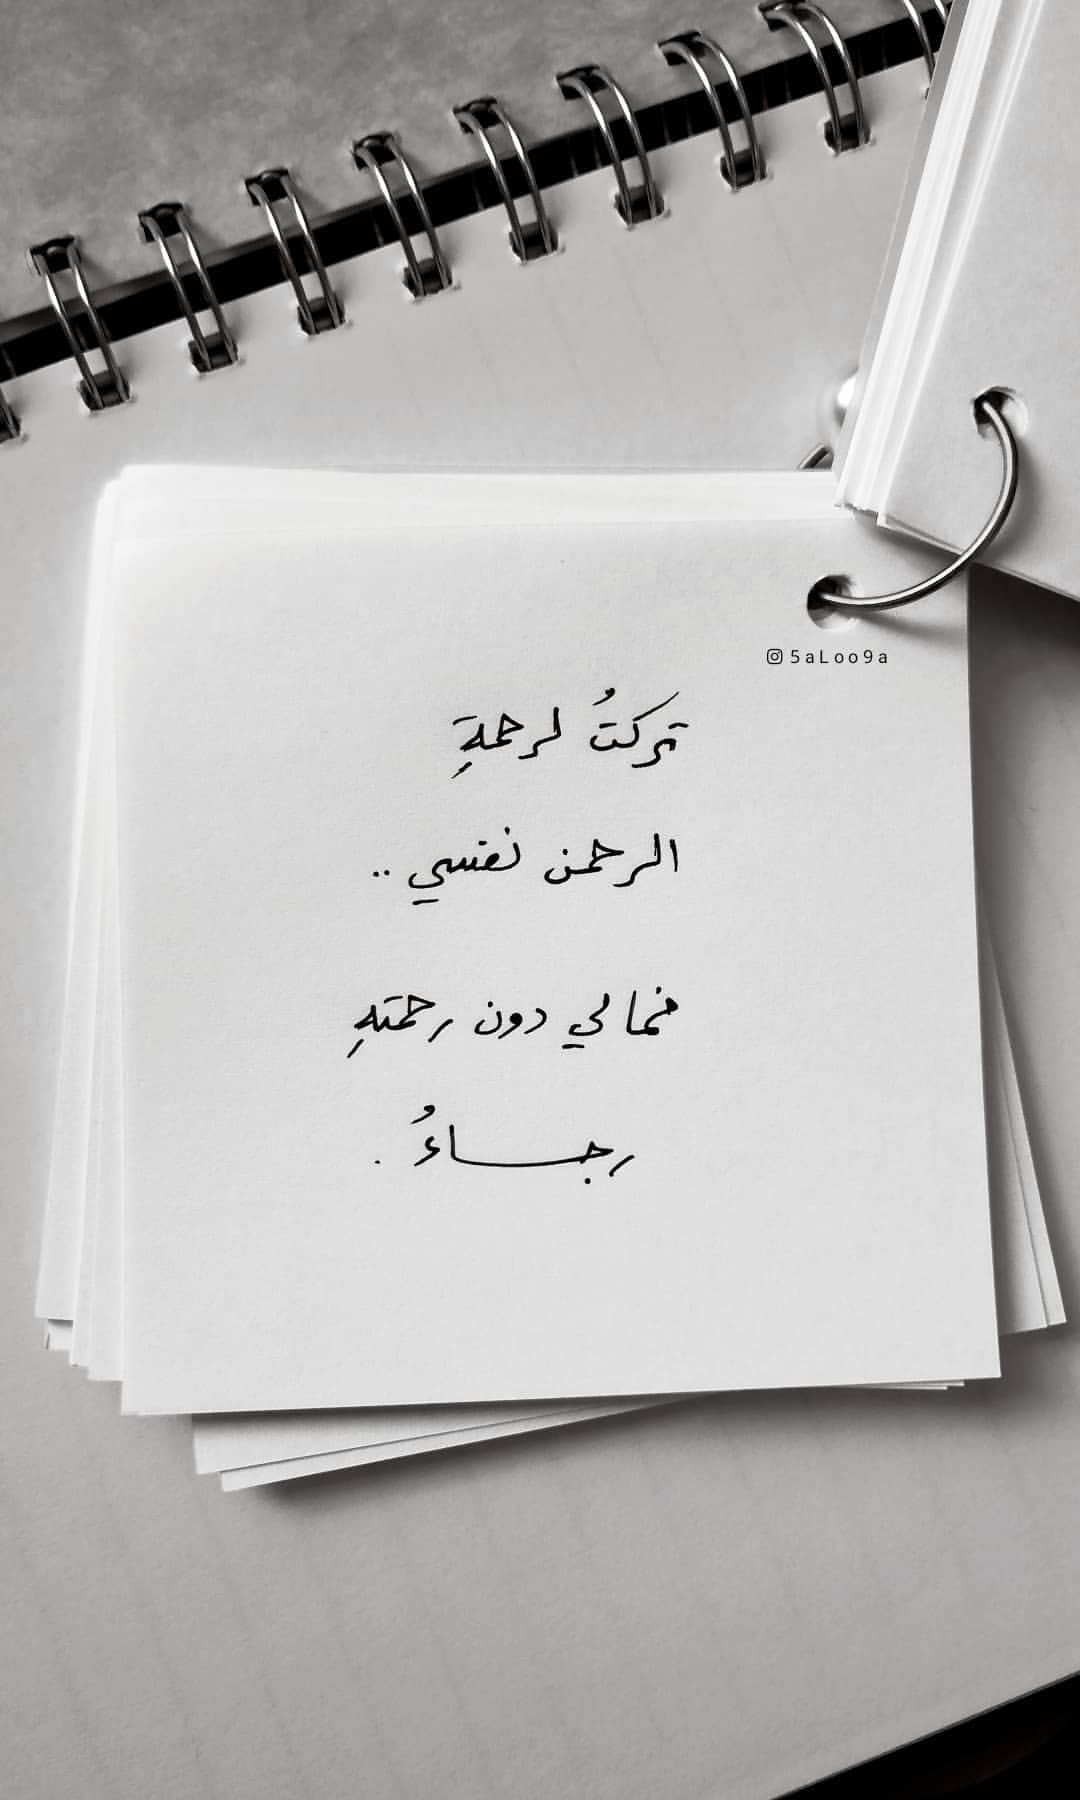 5aLoo9a
تركتُ لرحمةِ
الرحمن نفسي ..
فمالي دون رحمتهِ
رجـــاءُ .